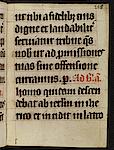 ut tibi a fidelib tuis
digne et laudabilit
seruiatur tribue qs
nob ut ad pmissiones
tuas sine offensione
curramus. p. Ad
homo quidam descen
debat ab ierlm in ihe
rico et incidit in latro